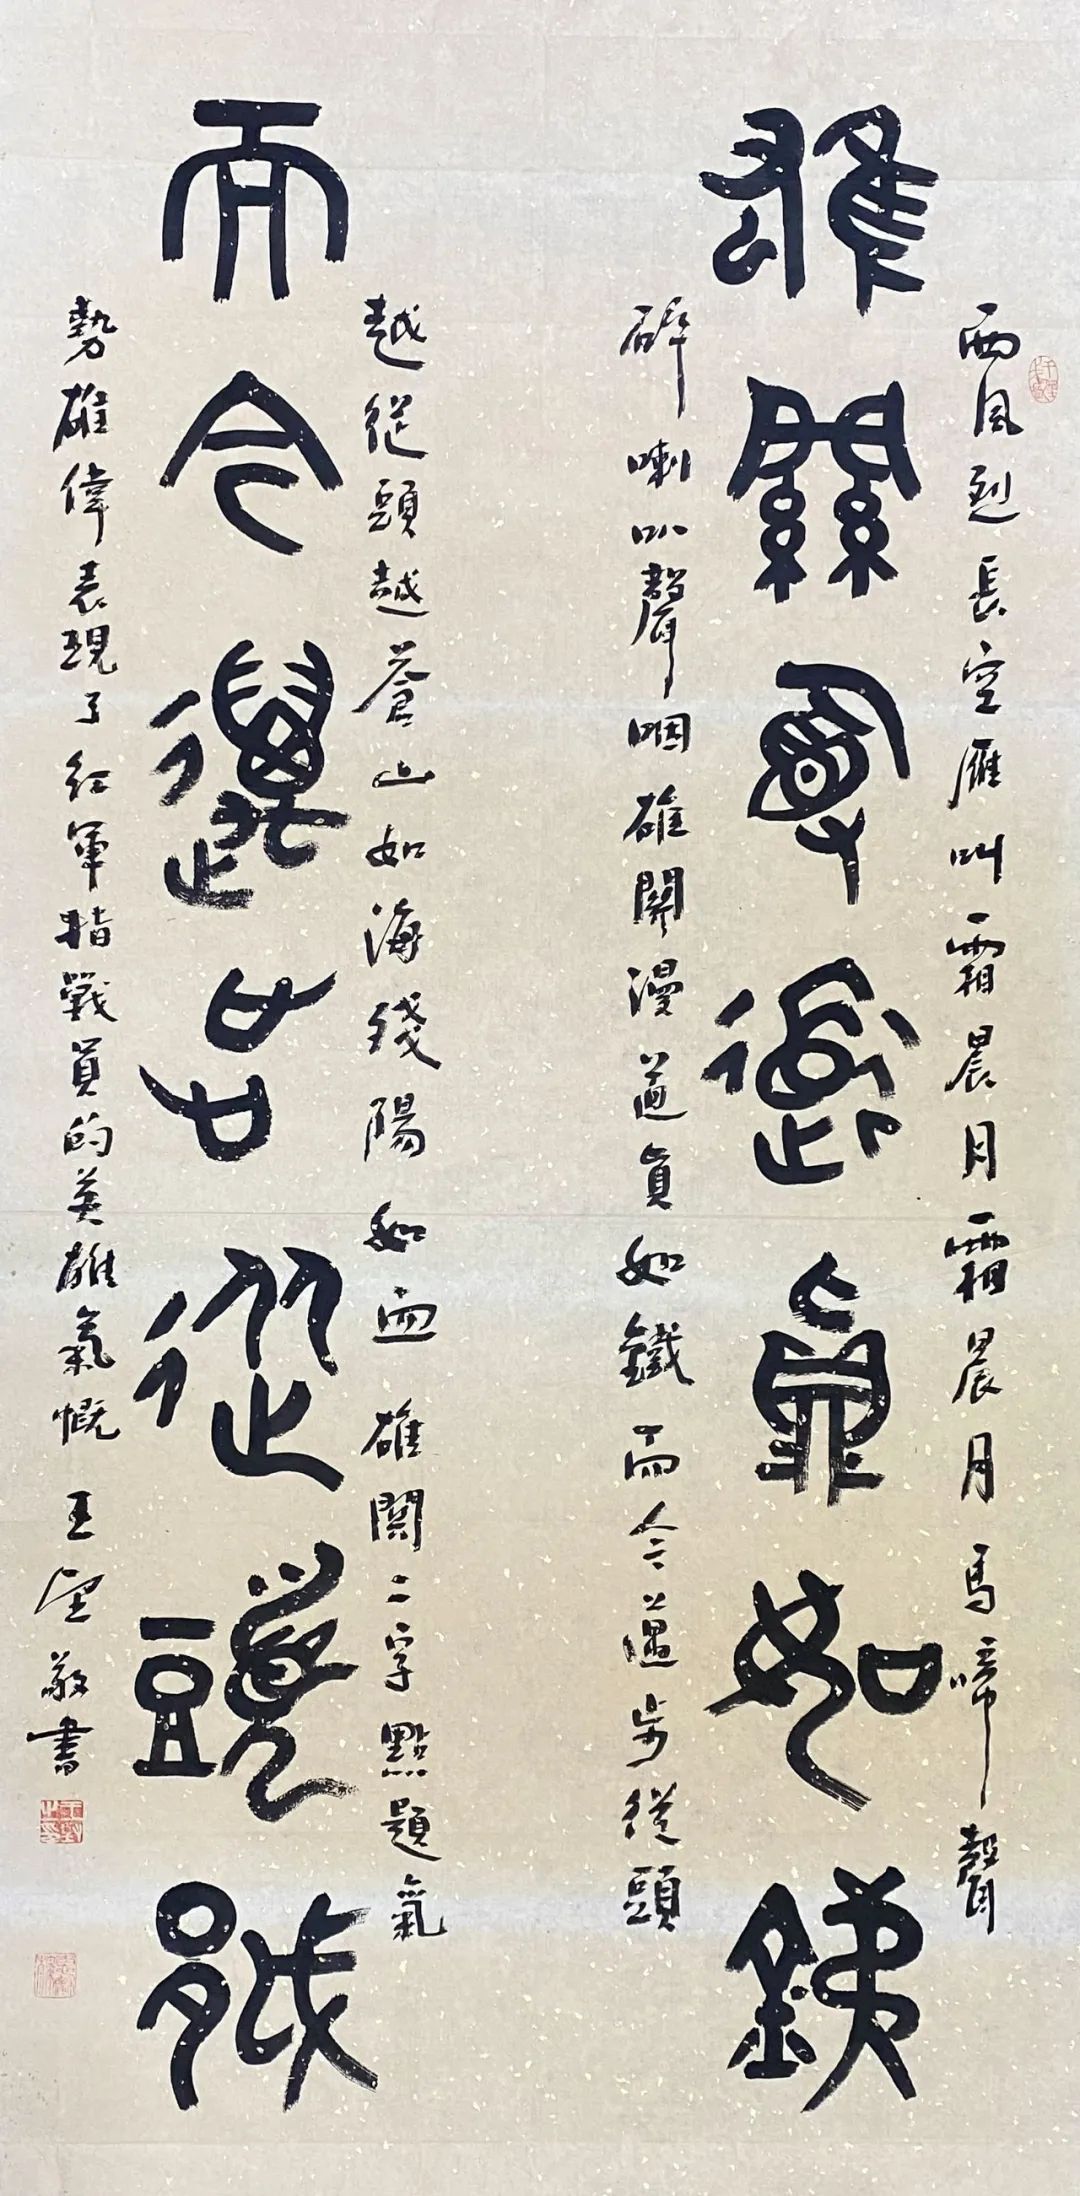 雄關漫道真如鐵
而今邁步從頭越
西風烈長空雁叫霜晨月霜晨月馬啼聲
碎喇叭聲咽雄關漫道真如鐵而今邁步從頭
越從頭越蒼山如海殘陽如血 雄關二字點題氣
勢雄偉表現了紅軍指戰員的英雄氣慨 王 敬書